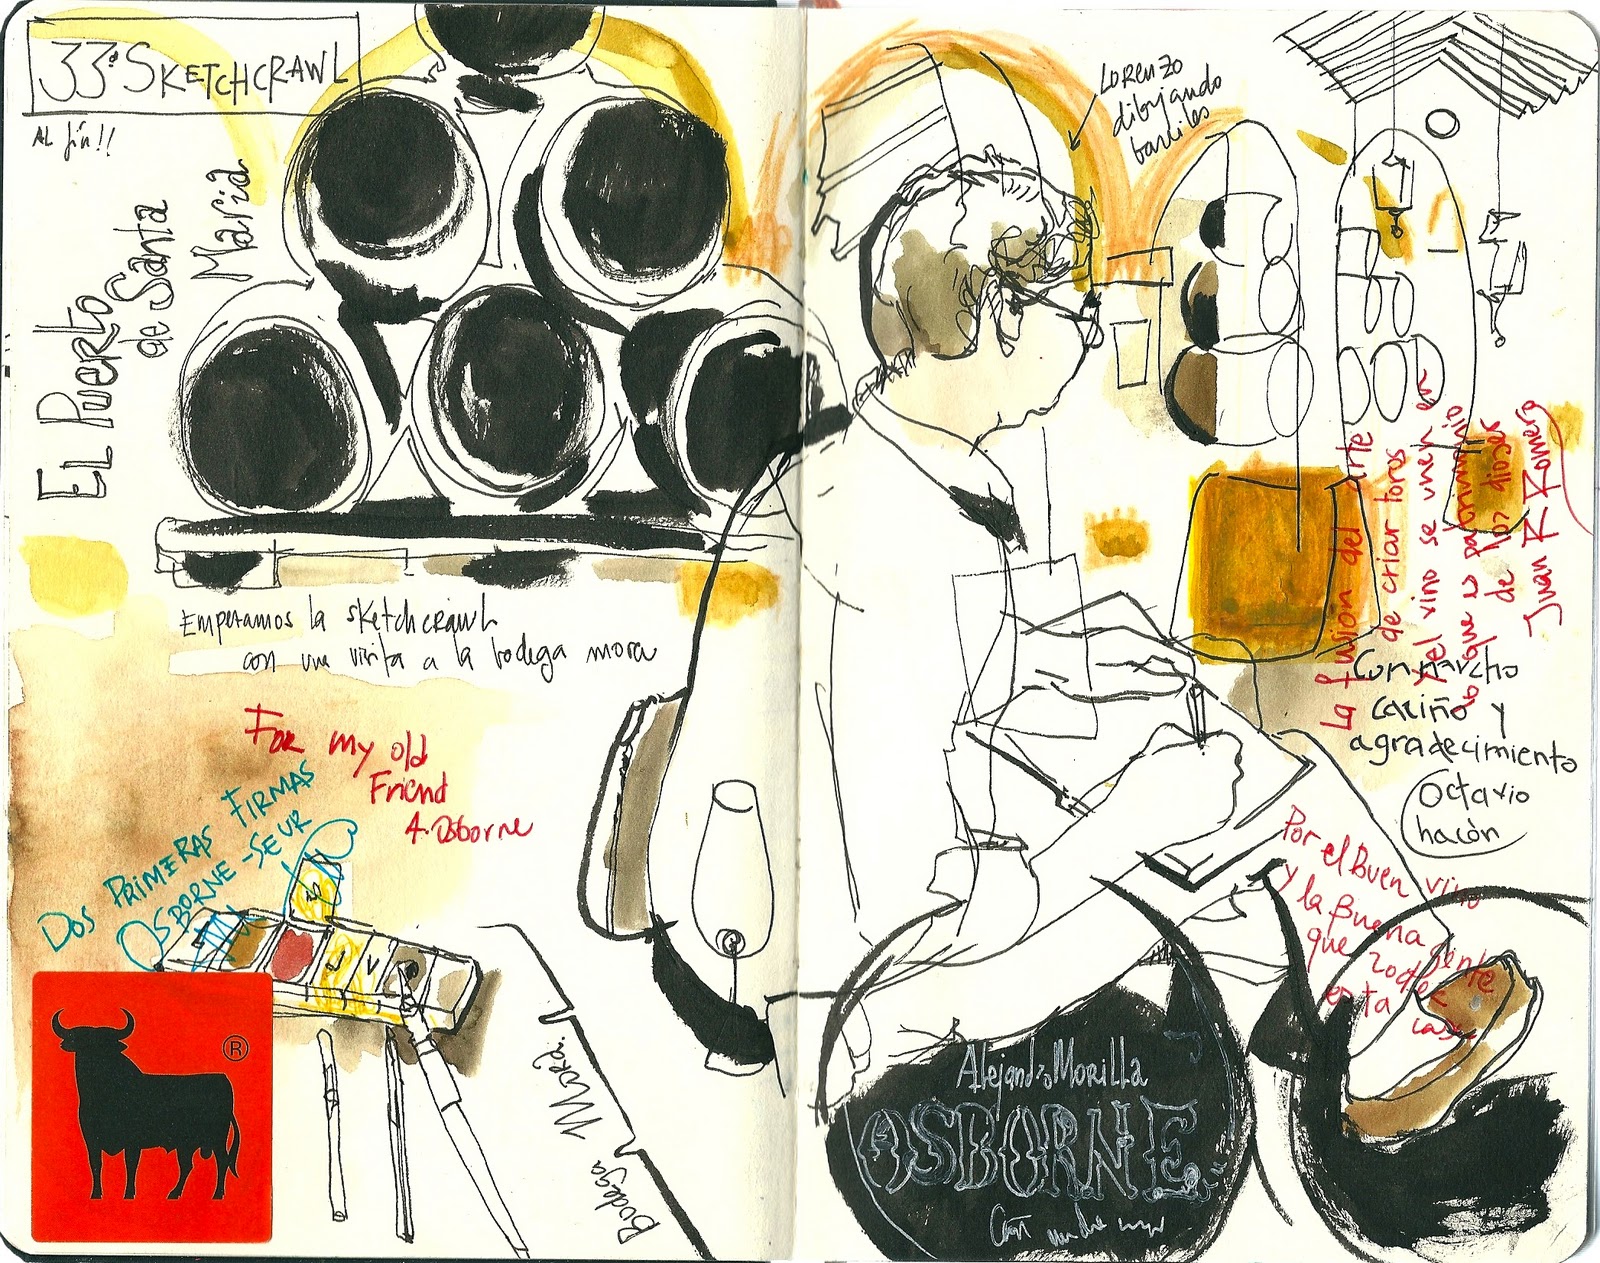 33ª SKETCHCRAWL
AL fin!!
EL PUERTO
de SANTA
MARIA
Empezamos la sketchcrawl
con una visita a la bodega mora
For my old
Friend
A. Osborne
DOS PRIMERAS FIRMAS
OSBORNE - SEUR
®
Bodega Mora.
LORENZO
dibujando
barriles
La fusión del arte
de criar toros
y el vino se unen en
lo que es patrimonio
de los dioses
Juan R Romero
Con mucho
cariño y
agradecimiento
Octavio
chacón
Por el Buen vino
y la Buena gente
que rodea
esta casa
Alejandro Morilla
OSBORNE